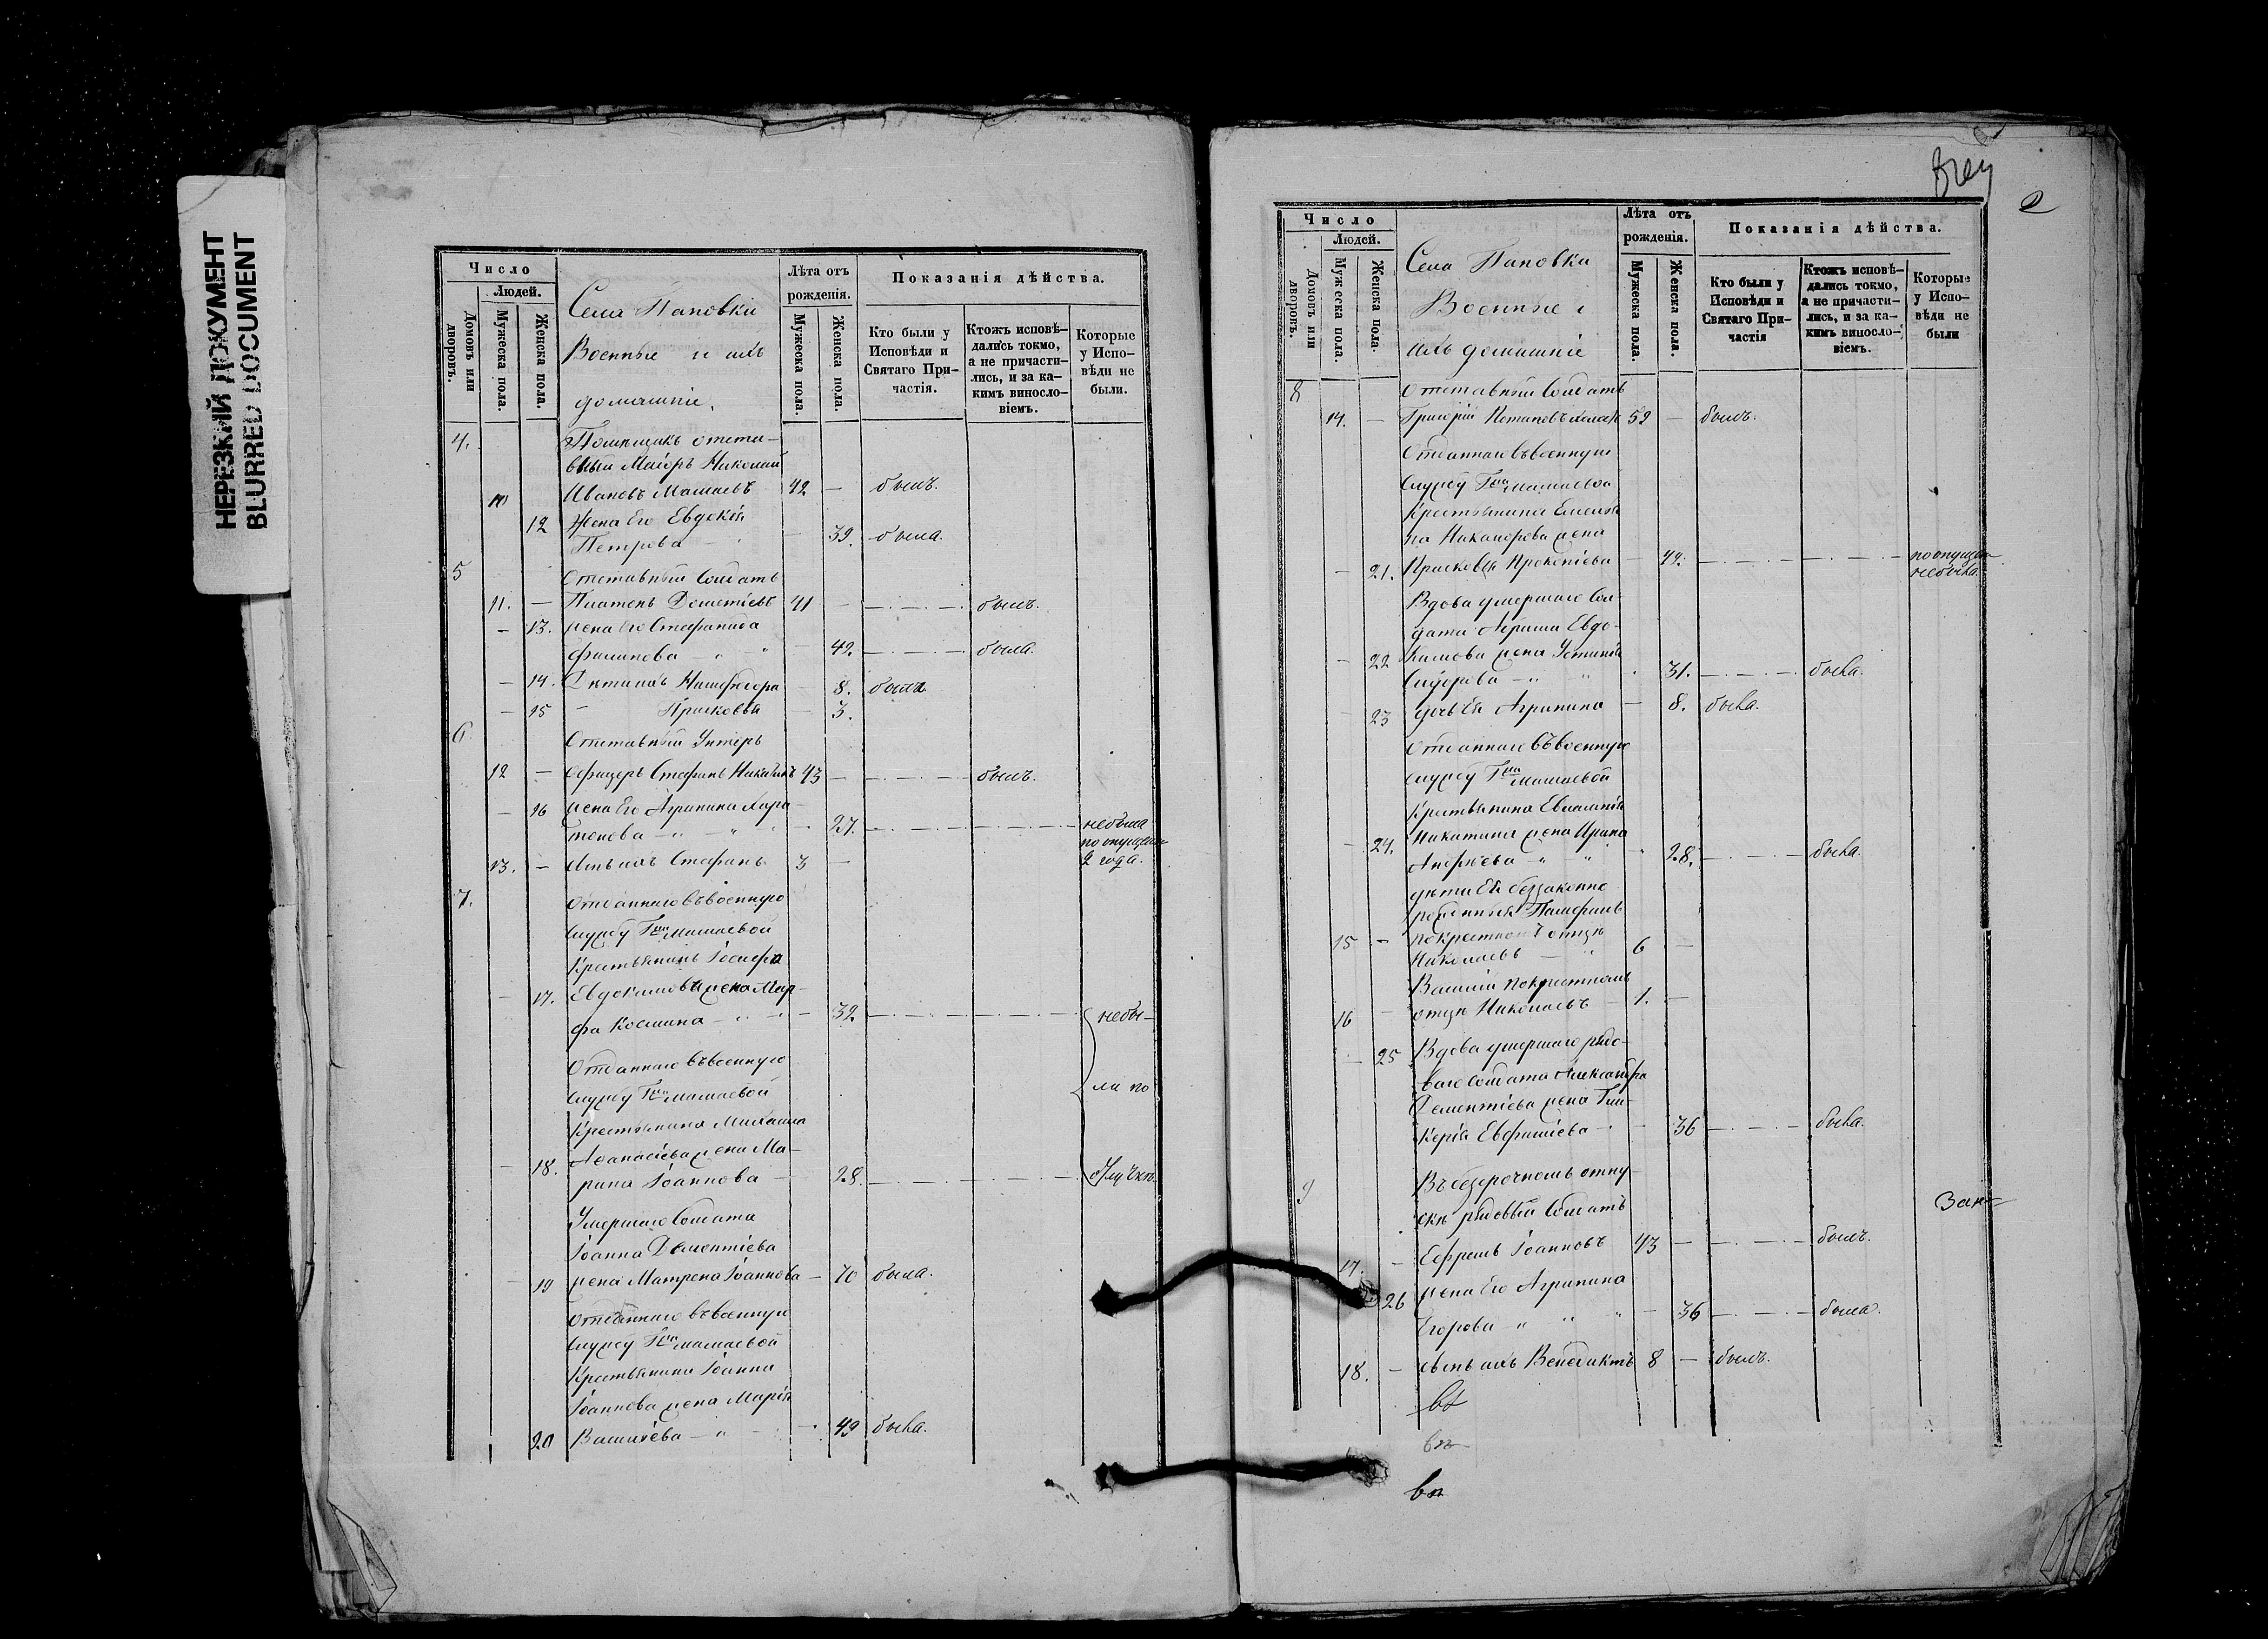 НЕРЕЗКИЙ ДОКУМЕНТ
BLURRED DOCUMENT
Число
Людей.
Домовъ или дворовъ.
Мужеска пола.
Женска пола.
Села Паповки
Военные и ихъ
домашніе.
Лѣта отъ
рожденія.
Мужеска пола.
Женска пола.
Показанія дѣйства.
Кто были у
Исповѣди и
Святаго При-
частія.
Ктожъ исповѣ-
дались токмо,
а не причасти-
лись, и за ка-
кимъ виносло-
віемъ.
Которые
у Испо-
вѣди не
были.
4.
Помѣщикъ отста-
вный Маіоръ Николай
10 Ивановъ Машаевъ 42 — былъ.
12 Жена Его Евдокія
Петрова — 39. была.
5
Отставный Солдатъ
11. — Платонъ Дементіевъ 41 — былъ.
— 13. жена Его Стефанида
Филипова — 42. — была.
— 14. Дѣти ихъ — 8. была
— 15 — Прасковья — 3.
6
Отставный Унтеръ
12 — Офицеръ Стефанъ Никитинъ 43 — былъ.
— 16 жена Его Агрипина Хари-
тонова — 27. — небыла
по опущен.
2 года.
13. — Сынъ ихъ Стефанъ 3 —
7.
Отданнаго въ военную
службу Гжи Машаевой
Крестьянинъ Іосифа
— 17. Евдокимова жена Мар-
фа Косьмина — 32. — небы-
Отданнаго въ военную
службу Гжи Машаевой
ли по
Крестьянина Михаила
Аѳанасіева жена Ма-
— 18. рина Іоаннова — 28. — отлучкѣ.
Умершаго Солдата
Іоанна Дементіева
— 19 жена Матрена Іоаннова — 70 была.
Отданнаго въ военную
службу Гжи Машаевой
Крестьянина Іоанна
Іоаннова жена Марія
20 Васильева — 49 была.
2
Число
Людей.
Домовъ или дворовъ.
Мужеска пола.
Женска пола.
Села Паповки
Военные и
ихъ домашніе
Лѣта отъ
рожденія.
Мужеска пола.
Женска пола.
Показанія дѣйства.
Кто были у
Исповѣди и
Святаго При-
частія
Ктожъ исповѣ-
дались токмо,
а не причасти-
лись, и за ка-
кимъ виносло-
віемъ.
Которые
у Испо-
вѣди не
были
8
Отставный Солдатъ
14. — Григорій 59 — былъ.
Отданнаго въ военную
службу Гжи Машаевой
Крестьянина Емелья
на Никанорова жена
— 21. Прасковья Прокопіева — 42. — по опущен
небыла.
Вдова умершаго Сол-
дата Евдо-
— 22 кимова жена Устинья
Сидорова — 31. — была.
— 23 дочь Ея Агрипина — 8. была.
Отданнаго въ военную
службу Гжи Машаевой
Крестьянина Евлампія
— 24. Никитина жена Ирина
Андреева — 28. — была.
дѣти Ея беззаконно
рожденныя Памфилъ
15 — по крестному отцу
Николаевъ — 6 —
Василій по крестному
16 — отцу Николаевъ — 1. —
— 25 Вдова умершаго рядо-
ваго Солдата Александра
Дементіева жена Гли-
керія Евфиміева — 36 — была.
9
Въ безсрочномъ отпу-
скѣ рядовый Солдатъ
17. — Ефремъ Іоанновъ 43 — былъ.
26 жена Его Агрипина
Егорова — 36 — была.
18. — сынъ ихъ Венедиктъ 8 — былъ.